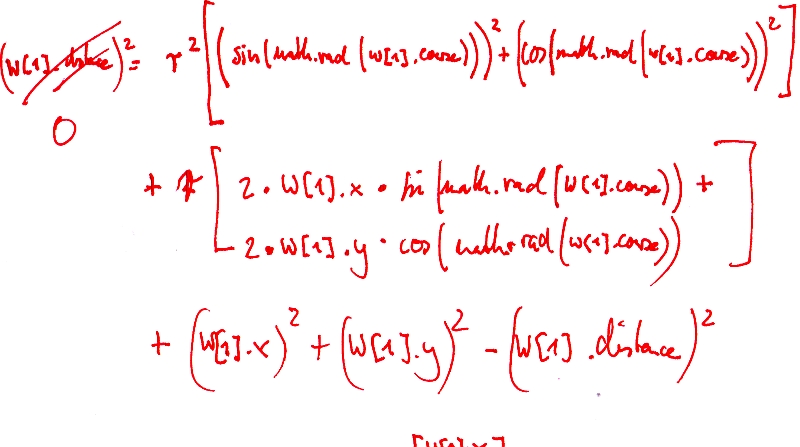 (w[1].distance)² = r² [ (sin(math.rad(w[1].course)))² + (cos(math.rad(w[1].course)))² ]
0
+ r [ 2 • w[1].x • sin(math.rad(w[1].course)) +
2 • w[1].y • cos(math.rad(w[1].course)) ]
+ (w[1].x)² + (w[1].y)² - (w[1].distance)²